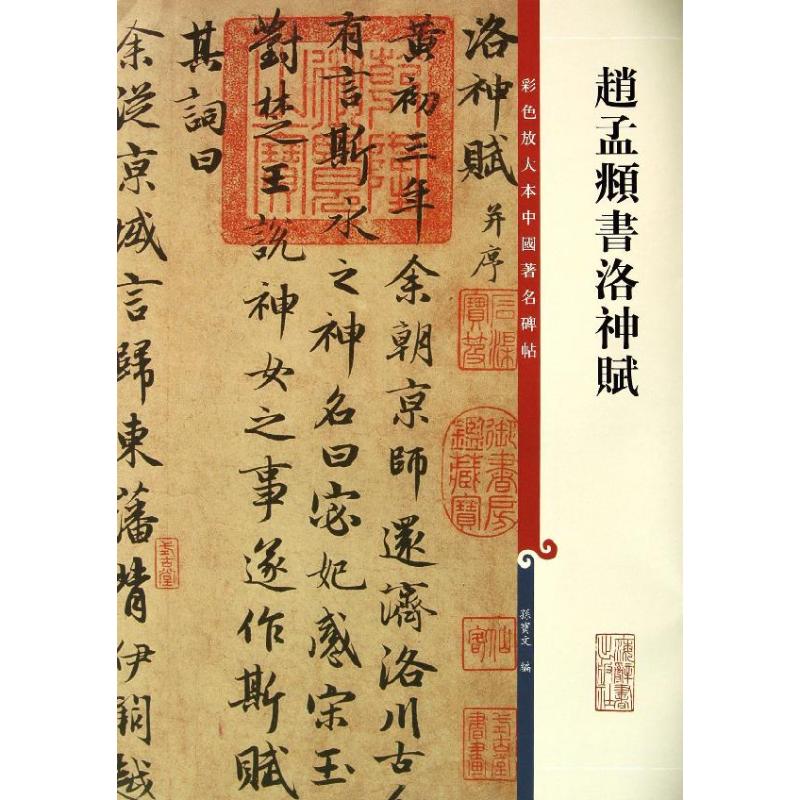 趙孟頫書洛神賦
彩色放大本中國著名碑帖
孫寶文 編
洛神賦 并序
黄初三年余朝京師還濟洛川古
有言斯水之神名曰宓妃感宋玉
對楚王說神女之事遂作斯賦
其詞曰
余從京域言歸東藩背伊闕越
乾隆御覽之寶
石渠寶笈
御書房鑑藏寶